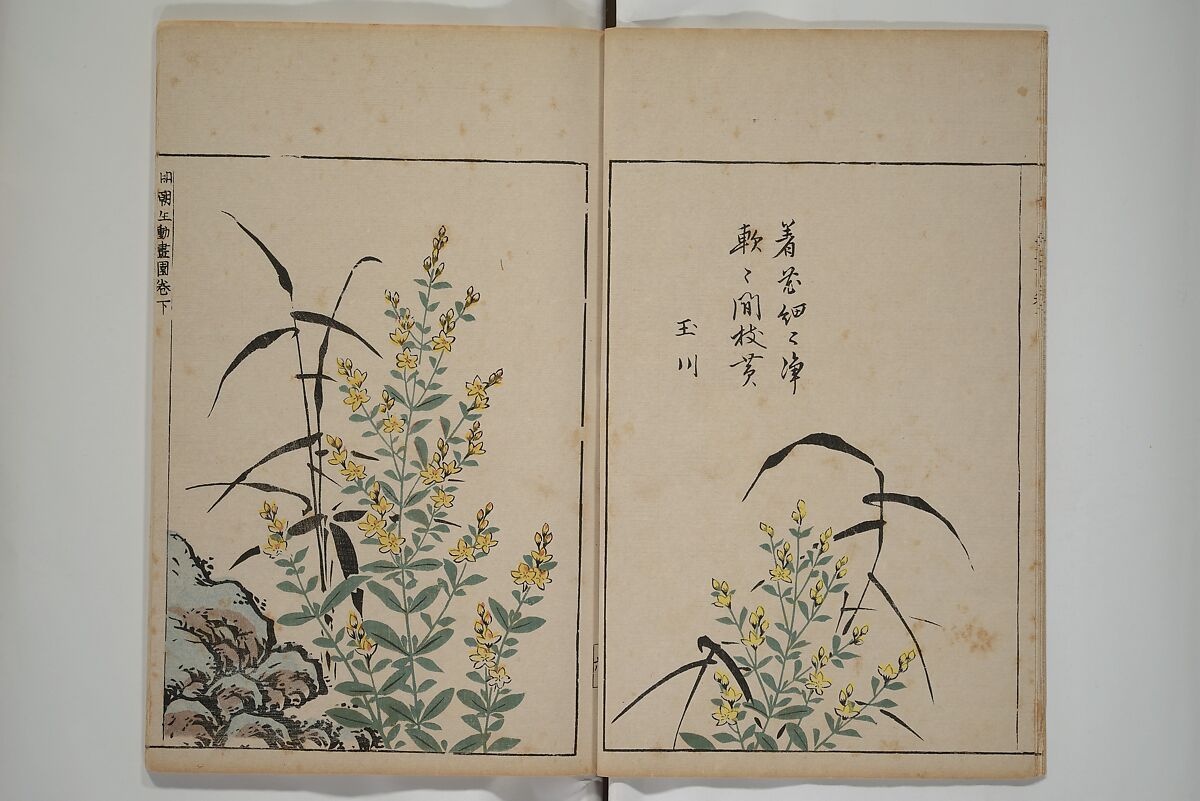 着花細〻浄
軟〻間枝黄
玉川
明朝生動畫園巻下